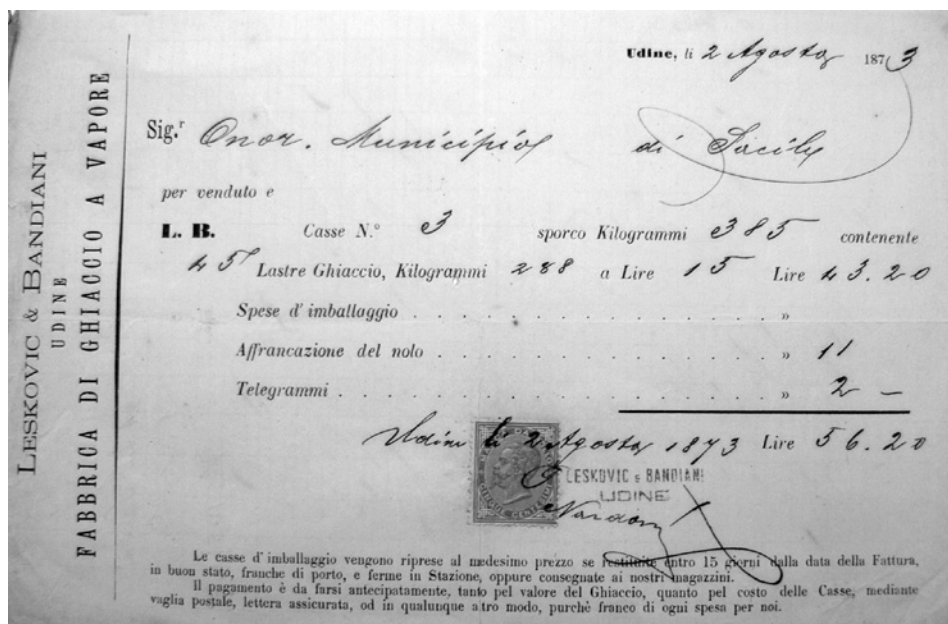 LESKOVIC & BANDIANI
UDINE
FABBRICA DI GHIACCIO A VAPORE
Udine, li 2 Agosto 1873
Sig.r Onor. Municipio di Sacile
per venduto e
L. B. Casse N.° 3 sporco Kilogrammi 385 contenente
45 Lastre Ghiaccio, Kilogrammi 288 a Lire 15 Lire 43.20
Spese d' imballaggio . . . . . . . . . . . . . . . . »
Affrancazione del nolo . . . . . . . . . . . . . . . . » 11
Telegrammi . . . . . . . . . . . . . . . . . . . » 2 —
Udine li 2 Agosto 1873 Lire 56.20
LESKOVIC & BANDIANI
UDINE
CINQUE CENTESIMI
Le casse d' imballaggio vengono riprese al medesimo prezzo se restituite entro 15 giorni dalla data della Fattura,
in buon stato, franche di porto, e ferme in Stazione, oppure consegnate ai nostri magazzini.
Il pagamento è da farsi antecipatamente, tanto pel valore del Ghiaccio, quanto pel costo delle Casse, mediante
vaglia postale, lettera assicurata, od in qualunque altro modo, purchè franco di ogni spesa per noi.